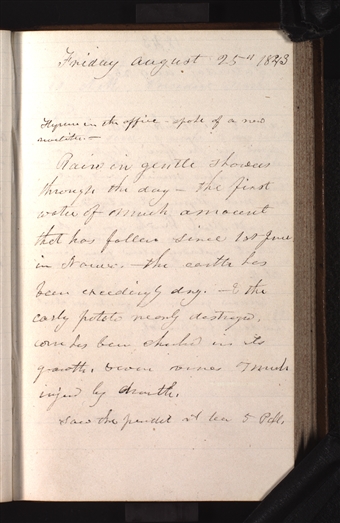 Friday August 25th 1843
Hyrum in the office - spoke of a new
Rain in gentle showers
through the day - the first
water of much amount
that has fallen since 1st June
in Nauvoo. - the earth has
been exceedingly dry. - & the
early potato nearly destroyed.
corn has been checked in its
growth. even vines & much
injured by drouth.
saw the president at 5 P.M.